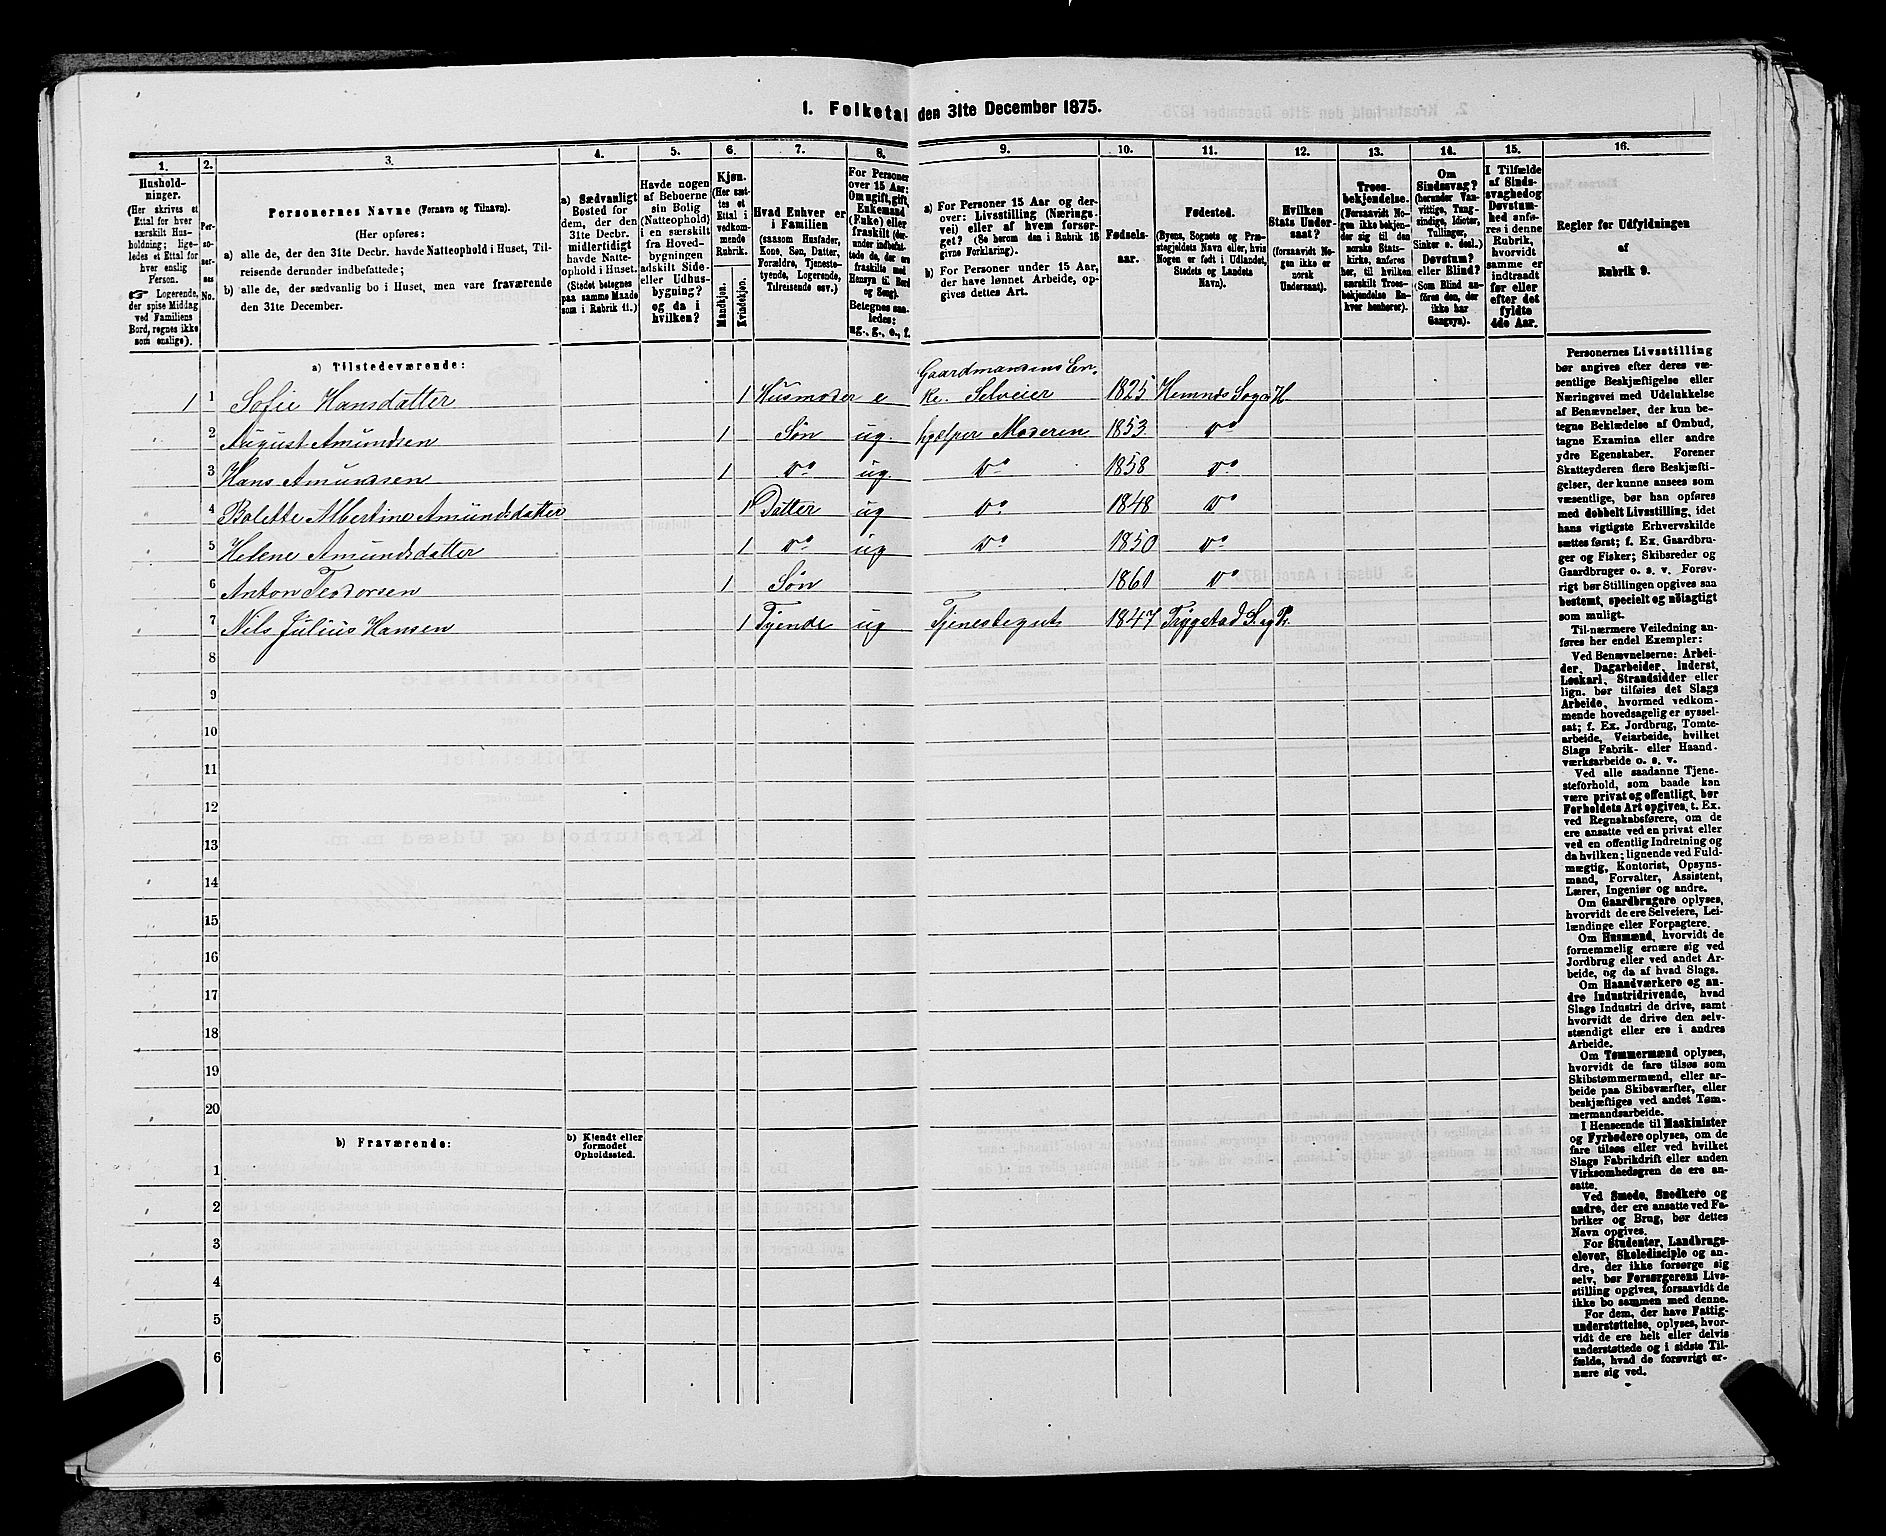 1. Folketal den 31te December 1875.
1. 2. 3. 4. 5. 6. 7. 8. 9. 10. 11. 12. 13. 14. 15. 16.
Hushold-
ninger.
(Her skrives et
Ettal for hver
særskilt Hus-
holdning; lige-
ledes et Ettal for
hver enslig
Person.
☛ Logerende,
der spise Middag
ved Familiens
Bord, regnes ikke
som enslige).
Per-
so-
ner-
nes
No.
Personernes Navne (Fornavn og Tilnavn).
(Her opføres:
a) alle de, der den 31te Decbr. havde Natteophold i Huset, Til-
reisende derunder indbefattede;
b) alle de, der sædvanlig bo i Huset, men vare fraværende
den 31te December.
a) Sædvanligt
Bosted for
dem, der den
31te Decbr.
midlertidigt
havde Natte-
ophold i Huset.
(Stedet betegnes
paa samme Maade
som i Rubrik 11.)
Havde nogen
af Beboerne
sin Bolig
(Natteophold)
i en særskilt
fra Hoved-
bygningen
adskilt Side-
eller Udhus-
bygning?
og da i
hvilken?
Kjøn.
(Her sæt-
tes et
Ettal i
vedkom-
mende
Rubrik.
Mandkjøn.
Kvindekjøn.
Hvad Enhver er
i Familien
(saasom Husfader,
Kone, Søn, Datter,
Forældre, Tjeneste-
tyende, Logerende,
Tilreisende osv.)
For Personer
over 15 Aar:
Om ugift, gift,
Enkemand
(Enke) eller
fraskilt (der-
under indbefat-
tede de, der ere
fraskilte med
Hensyn til Bord
og Seng).
Betegnes saa-
ledes:
ug., g., e., f.
a) For Personer 15 Aar og der-
over: Livsstilling (Nærings-
vei) eller af hvem forsør-
get? (Se herom den i Rubrik 16
givne Forklaring).
b) For Personer under 15 Aar,
der have lønnet Arbeide, op-
gives dettes Art.
Fødsels-
aar.
Fødested.
(Byens, Sognets og Præ-
stegjeldets Navn eller, hvis
Nogen er født i Udlandet,
Stedets og Landets
Navn).
Hvilken
Stats Under-
saat?
(forsaavidt No-
gen ikke er
norsk
Undersaat).
Troes-
bekjendelse.
(Forsaavidt No-
gen ikke bekjen-
der sig til den
norske Stats-
kirke, anføres
her, til hvilken
særskilt Troes-
bekjendelse En-
hver henhører).
Om
Sindssvag?
(herunder Van-
vittige, Tung-
sindige, Idioter,
Tullinger,
Sinker o. desl.)
Døvstum?
eller Blind?
(Som Blind an-
føres den, der
ikke har
Gangsyn).
I Tilfælde
af Sinds-
svaghed og
Døvstum-
hed anfø-
res i denne
Rubrik,
hvorvidt
samme er
indtraadt
før eller
efter det
fyldte
4de Aar.
Regler for Udfyldningen
af
Rubrik 9.
a) Tilstedeværende:
1 1 Sofie Hansdatter 1 Husmoder e Gaardmandens En-
ke. Selveier 1825 Hemnds Sogn H
2 August Amundsen 1 Søn ug. hjelper Moderen 1853 Do
3 Hans Amundsen 1 Do ug. Do 1858 Do
4 Bolette Albertine Amundsdatter 1 Datter ug Do 1848 Do
5 Helene Amundsdatter 1 Do ug Do 1850 Do
6 Anton Teodorsen 1 Søn 1860 Do
7 Nils Julius Hansen 1 Tyende ug 1847 Trygstad S. og Pr.
8
9
10
11
12
13
14
15
16
17
18
19
20
b) Fraværende:
b) Kjendt eller
formodet
Opholdssted.
1
2
3
4
5
6
Personernes Livsstilling
bør angives efter deres væ-
sentlige Beskjæftigelse eller
Næringsvei med Udelukkelse
af Benævnelser, der kun be-
tegne Beklædelse af Ombud,
tagne Examina eller andre
ydre Egenskaber. Forener
Skatteyderen flere Beskjæfti-
gelser, der kunne ansees som
væsentlige, bør han opføres
med dobbelt Livsstilling, idet
hans vigtigste Erhvervskilde
sættes først; f. Ex. Gaardbru-
ger og Fisker; Skibsreder og
Gaardbruger o. s. v. Forøv-
rigt bør Stillingen opgives saa
bestemt, specielt og nøiagtigt
som muligt.
Til nærmere Veiledning an-
føres her endel Exempler:
Ved Benævnelserne: Arbei-
der, Dagarbeider, Inderst,
Løskarl, Strandsidder eller
lign. bør tilføies det Slags
Arbeide, hvormed vedkom-
mende hovedsagelig er syssel-
sat; f. Ex. Jordbrug, Tomte-
arbeide, Veiarbeide, hvilket
Slags Fabrik- eller Haand-
værksarbeide o. s. v.
Ved alle saadanne Tjene-
steforhold, som baade kan
være privat og offentligt, bør
Forholdets Art opgives, t. Ex.
ved Regnskabsførere, om de
ere ansatte ved en privat eller
ved en offentlig Indretning og
da hvilken; lignende ved Fuld-
mægtig, Kontorist, Opsyns-
mand, Forvalter, Assistent,
Lærer, Ingeniør og andre.
Om Gaardbrugere oplyses,
hvorvidt de ere Selveiere, Lei-
lændinge eller Forpagtere.
Om Husmænd, hvorvidt de
fornemmelig ernære sig ved
Jordbrug eller ved andet Ar-
beide, og da af hvad Slags.
Om Haandværkere og an-
dre Industridrivende, hvad
Slags Industri de drive, samt
hvorvidt de drive den selv-
stændigt eller ere i andres
Arbeide.
Om Tømmermænd oplyses,
hvorvidt de fare tilsøs som
Skibstømmermænd, eller ar-
beide paa Skibsværfter, eller
beskjæftiges ved andet Tøm-
mermandsarbeide.
I Henseende til Maskinister
og Fyrbødere oplyses, om de
fare tilsøs eller ved hvilket
Slags Fabrikdrift eller anden
Virksomhedsgren de ere an-
satte.
Ved Smede, Snedkere og
andre, der ere ansatte ved Fa-
briker og Brug, bør dettes
Navn opgives.
For Studenter, Landbrugs-
elever, Skoledisciple og an-
dre, der ikke forsørge sig
selv, bør Forsørgerens Livs-
stilling opgives, forsaavidt de
ikke bo sammen med denne.
For dem, der have Fattig-
understøttelse, oplyses, hvor-
vidt de ere helt eller delvis
understøttede og i sidste Til-
fælde, hvad de forøvrigt er-
nære sig ved.